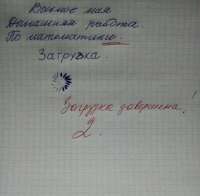 Восьмое мая
Домашняя работа
По математике.
Загрузка
Загрузка завершена!
2.